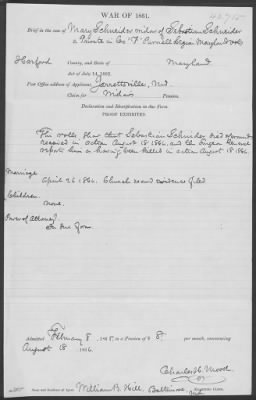 WAR OF 1861.
Brief in the case of Mary Schneider widow of Sebastian Schneider
a Private in Co "F" Purnell Legion Maryland Vols
Harford County, and State of Maryland
Act of July 14, 1862.
Post Office address of Applicant Jarrettsville, Md.
Claim for Widow's Pension.
Declaration and Identification in Due Form.
PROOF EXHIBITED
The rolls show that Sebastian Schneider died of wounds
received in action August 18 1864, and the Surgeon General
reports him as having been killed in action August 18 1864.
Marriage
April 26 1862. Church record evidence filed
Children.
None.
Power of Attorney
In due form.
Admitted February 8, 186 to a Pension of $8 per month, commencing
August 18, 1864.
Charles C. Wood
Name and Residence of Agent. William B. Hill, Baltimore
Md